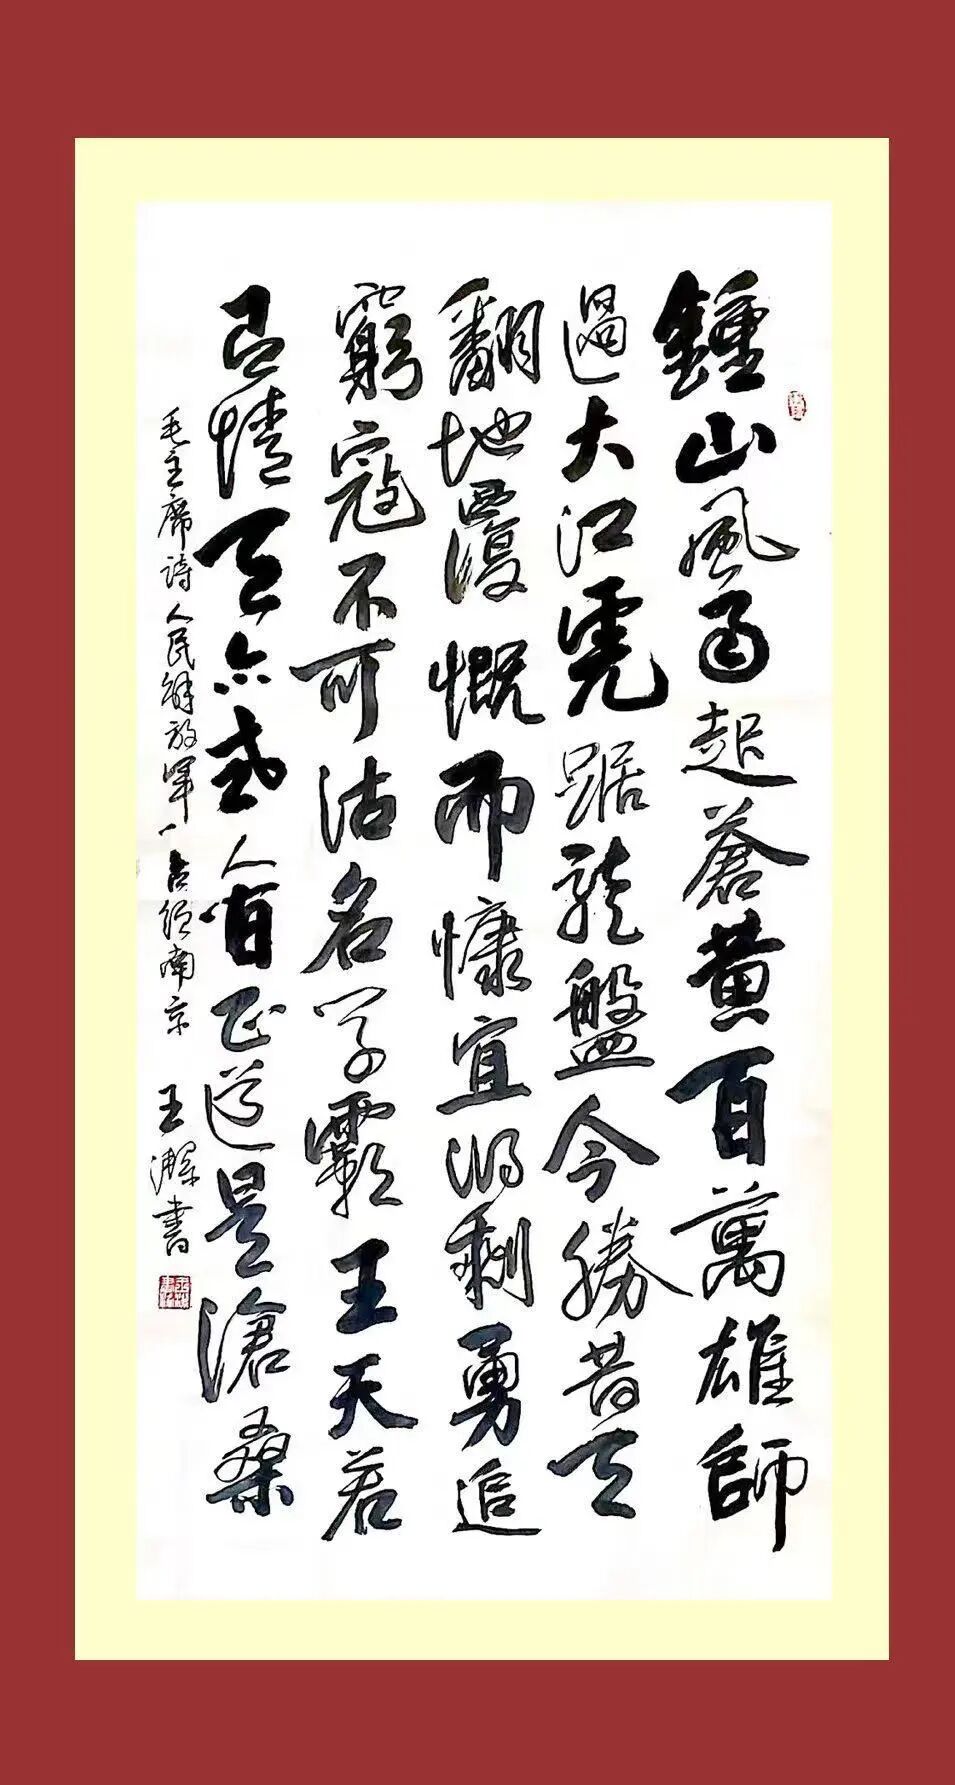 鍾山風雨起蒼黄百萬雄師
過大江虎踞龍盤今勝昔天
翻地覆慨而慷宜將剩勇追
窮寇不可沽名學霸王天若
有情天亦老人間正道是滄桑
毛主席詩人民解放軍占領南京 王書